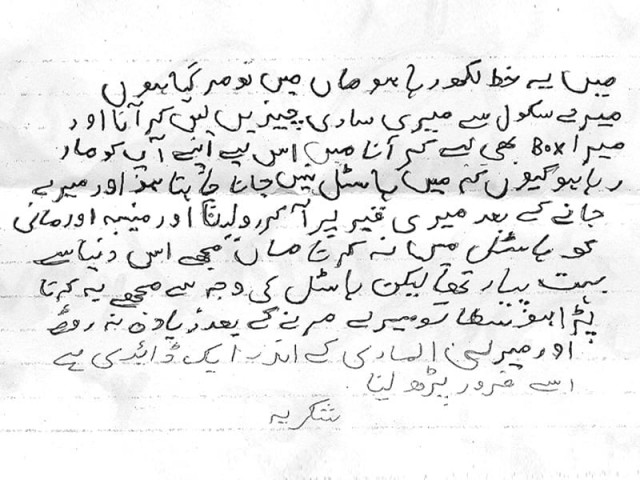 میں یہ خط لکھ رہا ہو ماں میں تو مر گیا ہوں
میرے سکول سے میری ساری چیزیں لیں کر آنا اور
میرا Box بھی لے کر آنا میں اس لیے اپنے آپ کو مار
رہا ہو کیوں کہ میں ہاسٹل نہیں جانا چاہتا ہو اور میرے
جانے کے بعد میری قبر پر آ کر اور منیبہ اور مانی
کو ہاسٹل میں نہ کرنا ماں مجھے اس دنیا سے
بہت پیار تھا لیکن ہاسٹل کی وجہ سے مجھے یہ کرنا
پڑا میرے مرنے کے بعد زیادہ نہ
اور میری الماری کے اندر ایک ڈائری ہے
اسے ضرور پڑھ لینا
شکریہ